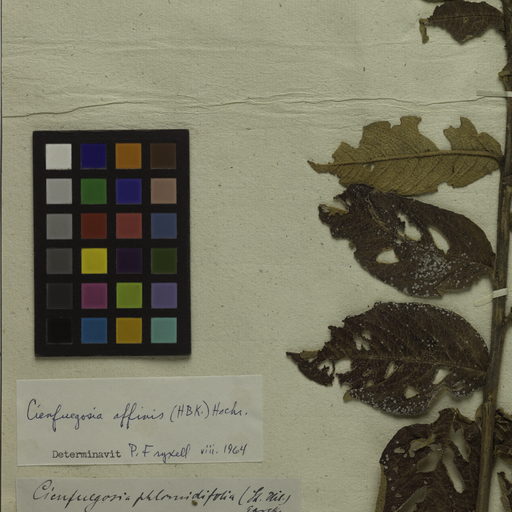 Cienfuegosia affinis (HBK.) Hochr.
Determinavit P. Fryxell viii. 1964
Cienfugosia phlomidifolia (St. Hil.)
Garcke